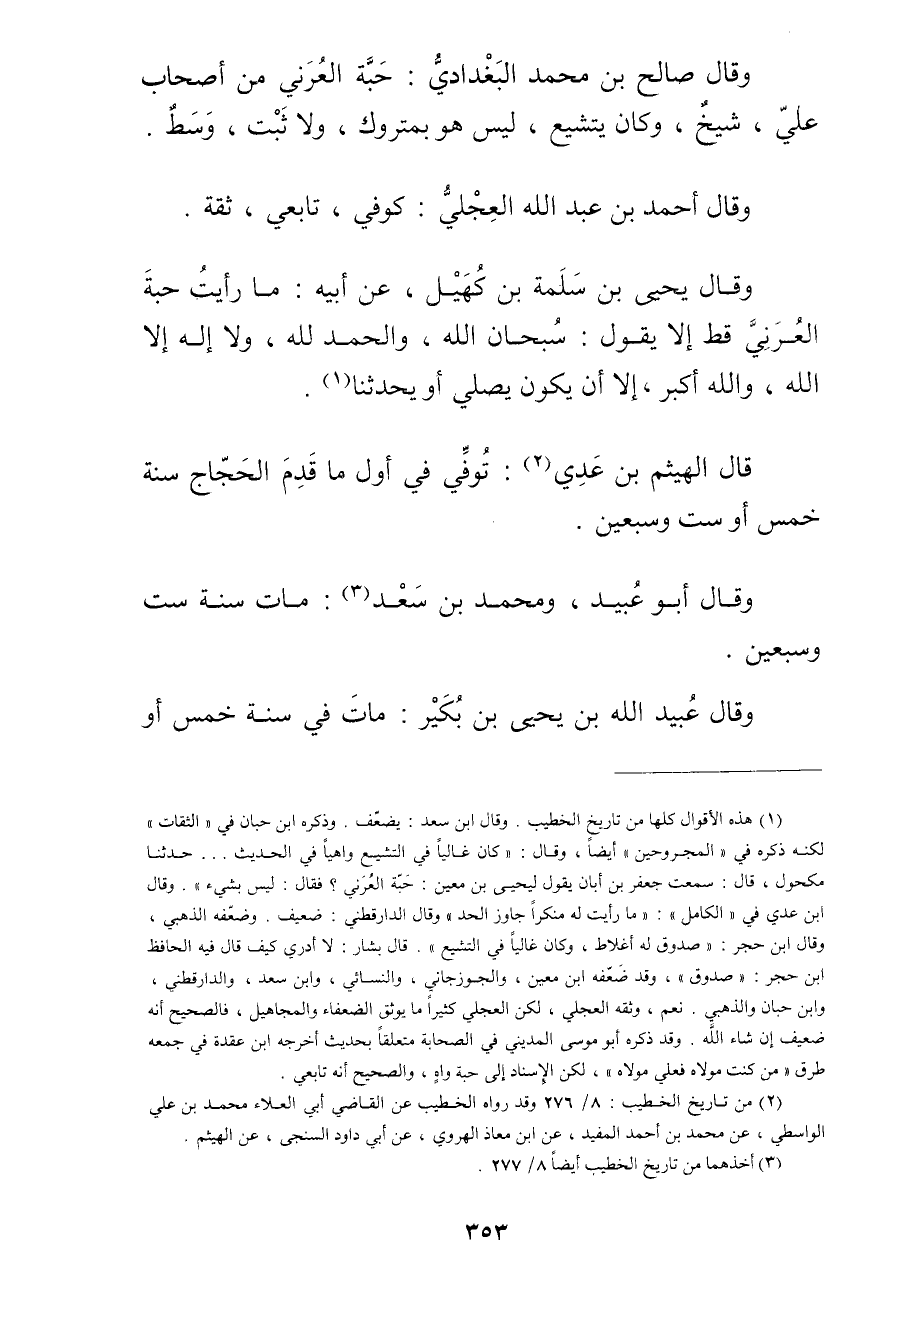 وقال صالح بن محمد البَغْداديُّ : حَبَّة العُرَني من أصحاب
عليّ ، شيخٌ ، وكان يتشيع ، ليس هو بمتروك ، ولا ثَبْت ، وَسَطٌ .
وقال أحمد بن عبد الله العِجْليُّ : كوفي ، تابعي ، ثقة .
وقال يحيى بن سَلَمة بن كُهَيْل ، عن أبيه : ما رأيتُ حبةَ
العُرَنِيَّ قط إلا يقول : سُبحان الله ، والحمد لله ، ولا إله إلا
الله ، والله أكبر ، إلا أن يكون يصلي أو يحدثنا(١) .
قال الهيثم بن عَدِي(٢) : تُوفِّي في أول ما قَدِمَ الحَجّاج سنة
خمس أو ست وسبعين .
وقال أبو عُبيد ، ومحمد بن سَعْد(٣) : مات سنة ست
وسبعين .
وقال عُبيد الله بن يحيى بن بُكَيْر : ماتَ في سنة خمس أو
(١) هذه الأقوال كلها من تاريخ الخطيب . وقال ابن سعد : يضعّف . وذكره ابن حبان في « الثقات »
لكنه ذكره في « المجروحين » أيضاً ، وقال : « كان غالياً في التشيع واهياً في الحديث ... حدثنا
مكحول ، قال : سمعت جعفر بن أبان يقول ليحيى بن معين : حَبّة العُرَني ؟ فقال : ليس بشيء » . وقال
ابن عدي في « الكامل » : « ما رأيت له منكراً جاوز الحد » وقال الدارقطني : ضعيف . وضعّفه الذهبي ،
وقال ابن حجر : « صدوق له أغلاط ، وكان غالياً في التشيع » . قال بشار : لا أدري كيف قال فيه الحافظ
ابن حجر : « صدوق » ، وقد ضَعّفه ابن معين ، والجوزجاني ، والنسائي ، وابن سعد ، والدارقطني ،
وابن حبان والذهبي . نعم ، وثقه العجلي ، لكن العجلي كثيراً ما يوثق الضعفاء والمجاهيل ، فالصحيح أنه
ضعيف إن شاء اللّه . وقد ذكره أبو موسى المديني في الصحابة متعلقاً بحديث أخرجه ابن عقدة في جمعه
طرق « من كنت مولاه فعلي مولاه » ، لكن الإسناد إلى حبة واهٍ ، والصحيح أنه تابعي .
(٢) من تاريخ الخطيب : ٨/ ٢٧٦ وقد رواه الخطيب عن القاضي أبي العلاء محمد بن علي
الواسطي ، عن محمد بن أحمد المفيد ، عن ابن معاذ الهروي ، عن أبي داود السنجي ، عن الهيثم .
(٣) أخذهما من تاريخ الخطيب أيضاً ٨/ ٢٧٧ .
٣٥٣